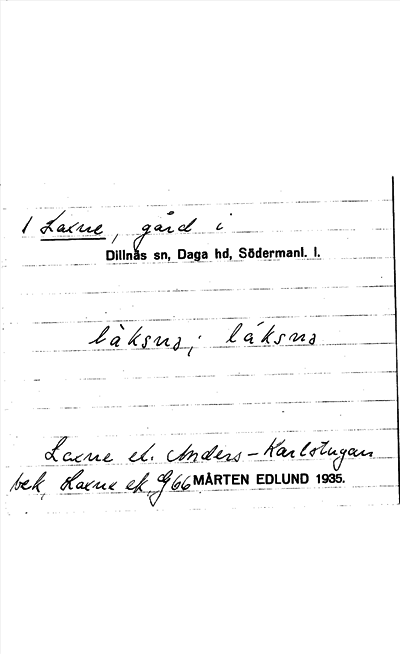 1 Laxne, gård i
Dillnäs sn, Daga hd, Södermanl. l.
làksnə; láksnə
Laxne el. Anders-Karlstugan
bek, Laxne ek. G66 MÅRTEN EDLUND 1935.